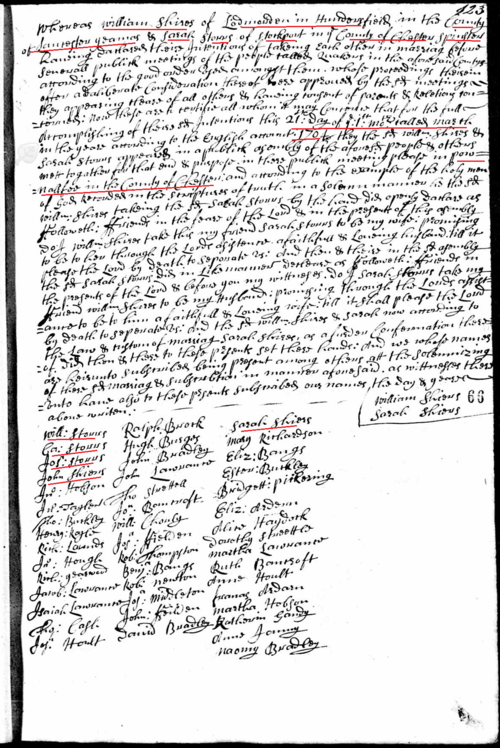 423
Whereas William Shires of Todmorden in Hundersfield in the County
of Lancaster yeaman & Sarah Storrs of Stockport in ye County of Chester Spinster
Haveing declared their Intentions of takeing Each other in mariag before
Severall publick meetings of the people Called Quakers in the aforesd County
according to the good order used amongst them whose proceedings therein
after a deliberate Consideration thereof were approved by the sd meetings
they appearing Cleare of all others & haveing Consent of parents & Relations Con-
-cerned: Now these are to Certifie all whom it may Concerne that for the full
Accomplishing of these sd Intentions this 21: day of ye 1: mo: Called march
in the yeare according to the English account: 170 they the sd Will: Shires &
Sarah Storrs appeared in a publick asembly of the aforesd people & others
met together for that end & purpose in their publick meeting place in Pow=
=nallfee in the County of Chester: and according to the example of the holy men
of God Recorded in the scriptures of truth in a Solemn manner he the sd
Will: Shires takeing the sd Sarah Storrs by the hand did openly declare as
followeth: ffriends in the feare of the Lord & in the present of this asembly
do I Will: Shires take this my friend Sarah Storrs to be my wife: promising
to be to her through the Lords asistence a faithfull & Loveing husband till it
please the Lord by death to seperate us: And then & there in the sd asembly
the sd Sarah Storrs did in Like manner declare as followeth: ffriends in
the present of the Lord & before you my witneses do I Sarah Storrs take my
ffriend Will: Shires to be my husband: promising through the Lords assist
=ance to be to him a faithfull & Loveing wife till it shall please the Lord
by death to seperate us: And the sd Will: Shires & Sarah now according to
the Law & Custom of mariag Sarah Shires as a further Confermation there
=of: did then & there to these presents set there hands: And we whose names
are hereunto subscribed being present among others att the solemnizing
of these sd mariag & Subscribtion in manner aforesaid: as witneses there
=unto have also to these presents subscribed our names the day & yeare
above writen:
William Shiers
Sarah Shiers
66
Will: Storrs
Geo: Storrs
Jos: Storrs
John Shiers
Jno: Hobson
Jno: Taylor
Tho: Buckley
Henry Royle
Rich: Lownds
Jo: Hough
Jacob: Lawrance
Isaiah Lawrance
Jos: Hoult
Ralph Brock
Hugh Burges
John Bradley
Joh Lawrance
Tho Strettell
Jo: Bancroft
Will: Chanby
Jos: Feilden
Rob: Thompson
Benj: Bangs
Rob: Newton
Jos: Midleton
John: Feilden
David Bradley
Sarah Shiers
Mary Richardson
Eliz: Bangs
Ester: Buckley
Bridgett: pickering
Eliz: Ardern
Alice Haydock
Dorothy Streettle
Martha Lawrance
Ruth Bancroft
Anne Hoult
Frances Ardarn
Martha: Hobson
Katherin Handy
Anne Janny
Naomy Bradley